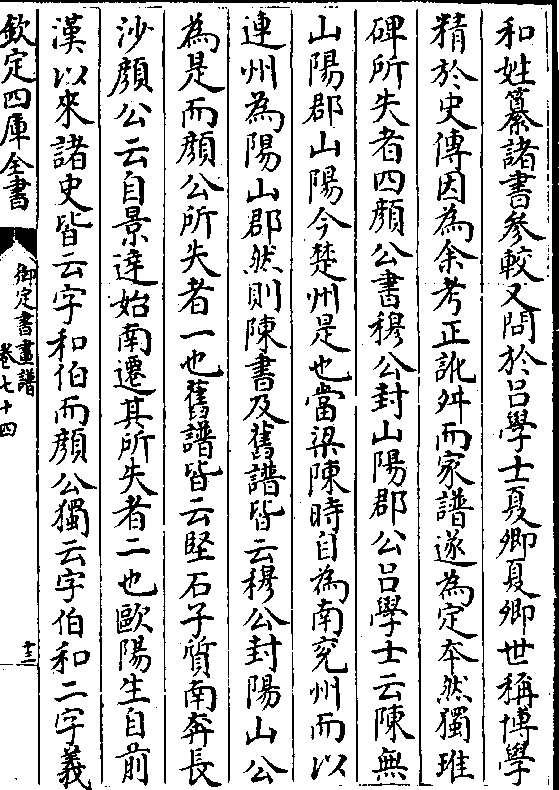 和姓纂諸書參較又問於呂學士夏卿夏卿世稱博學
精於史傳因為余考正訛舛而家譜遂為定本然獨琟
碑所失者四顔公書穆公封山陽郡公呂學士云陳無
山陽郡山陽今楚州是也當梁陳時自為南兖州而以
連州為陽山郡然則陳書及舊譜皆云穆公封陽山公
為是而顔公所失者一也舊譜皆云堅石子質南奔長
沙顔公云自景達始南遷其所失者二也歐陽生自前
漢以來諸史皆云字和伯而顔公獨云字伯和二字義
欽定四庫全書
御定書畫譜
卷七十四
十二